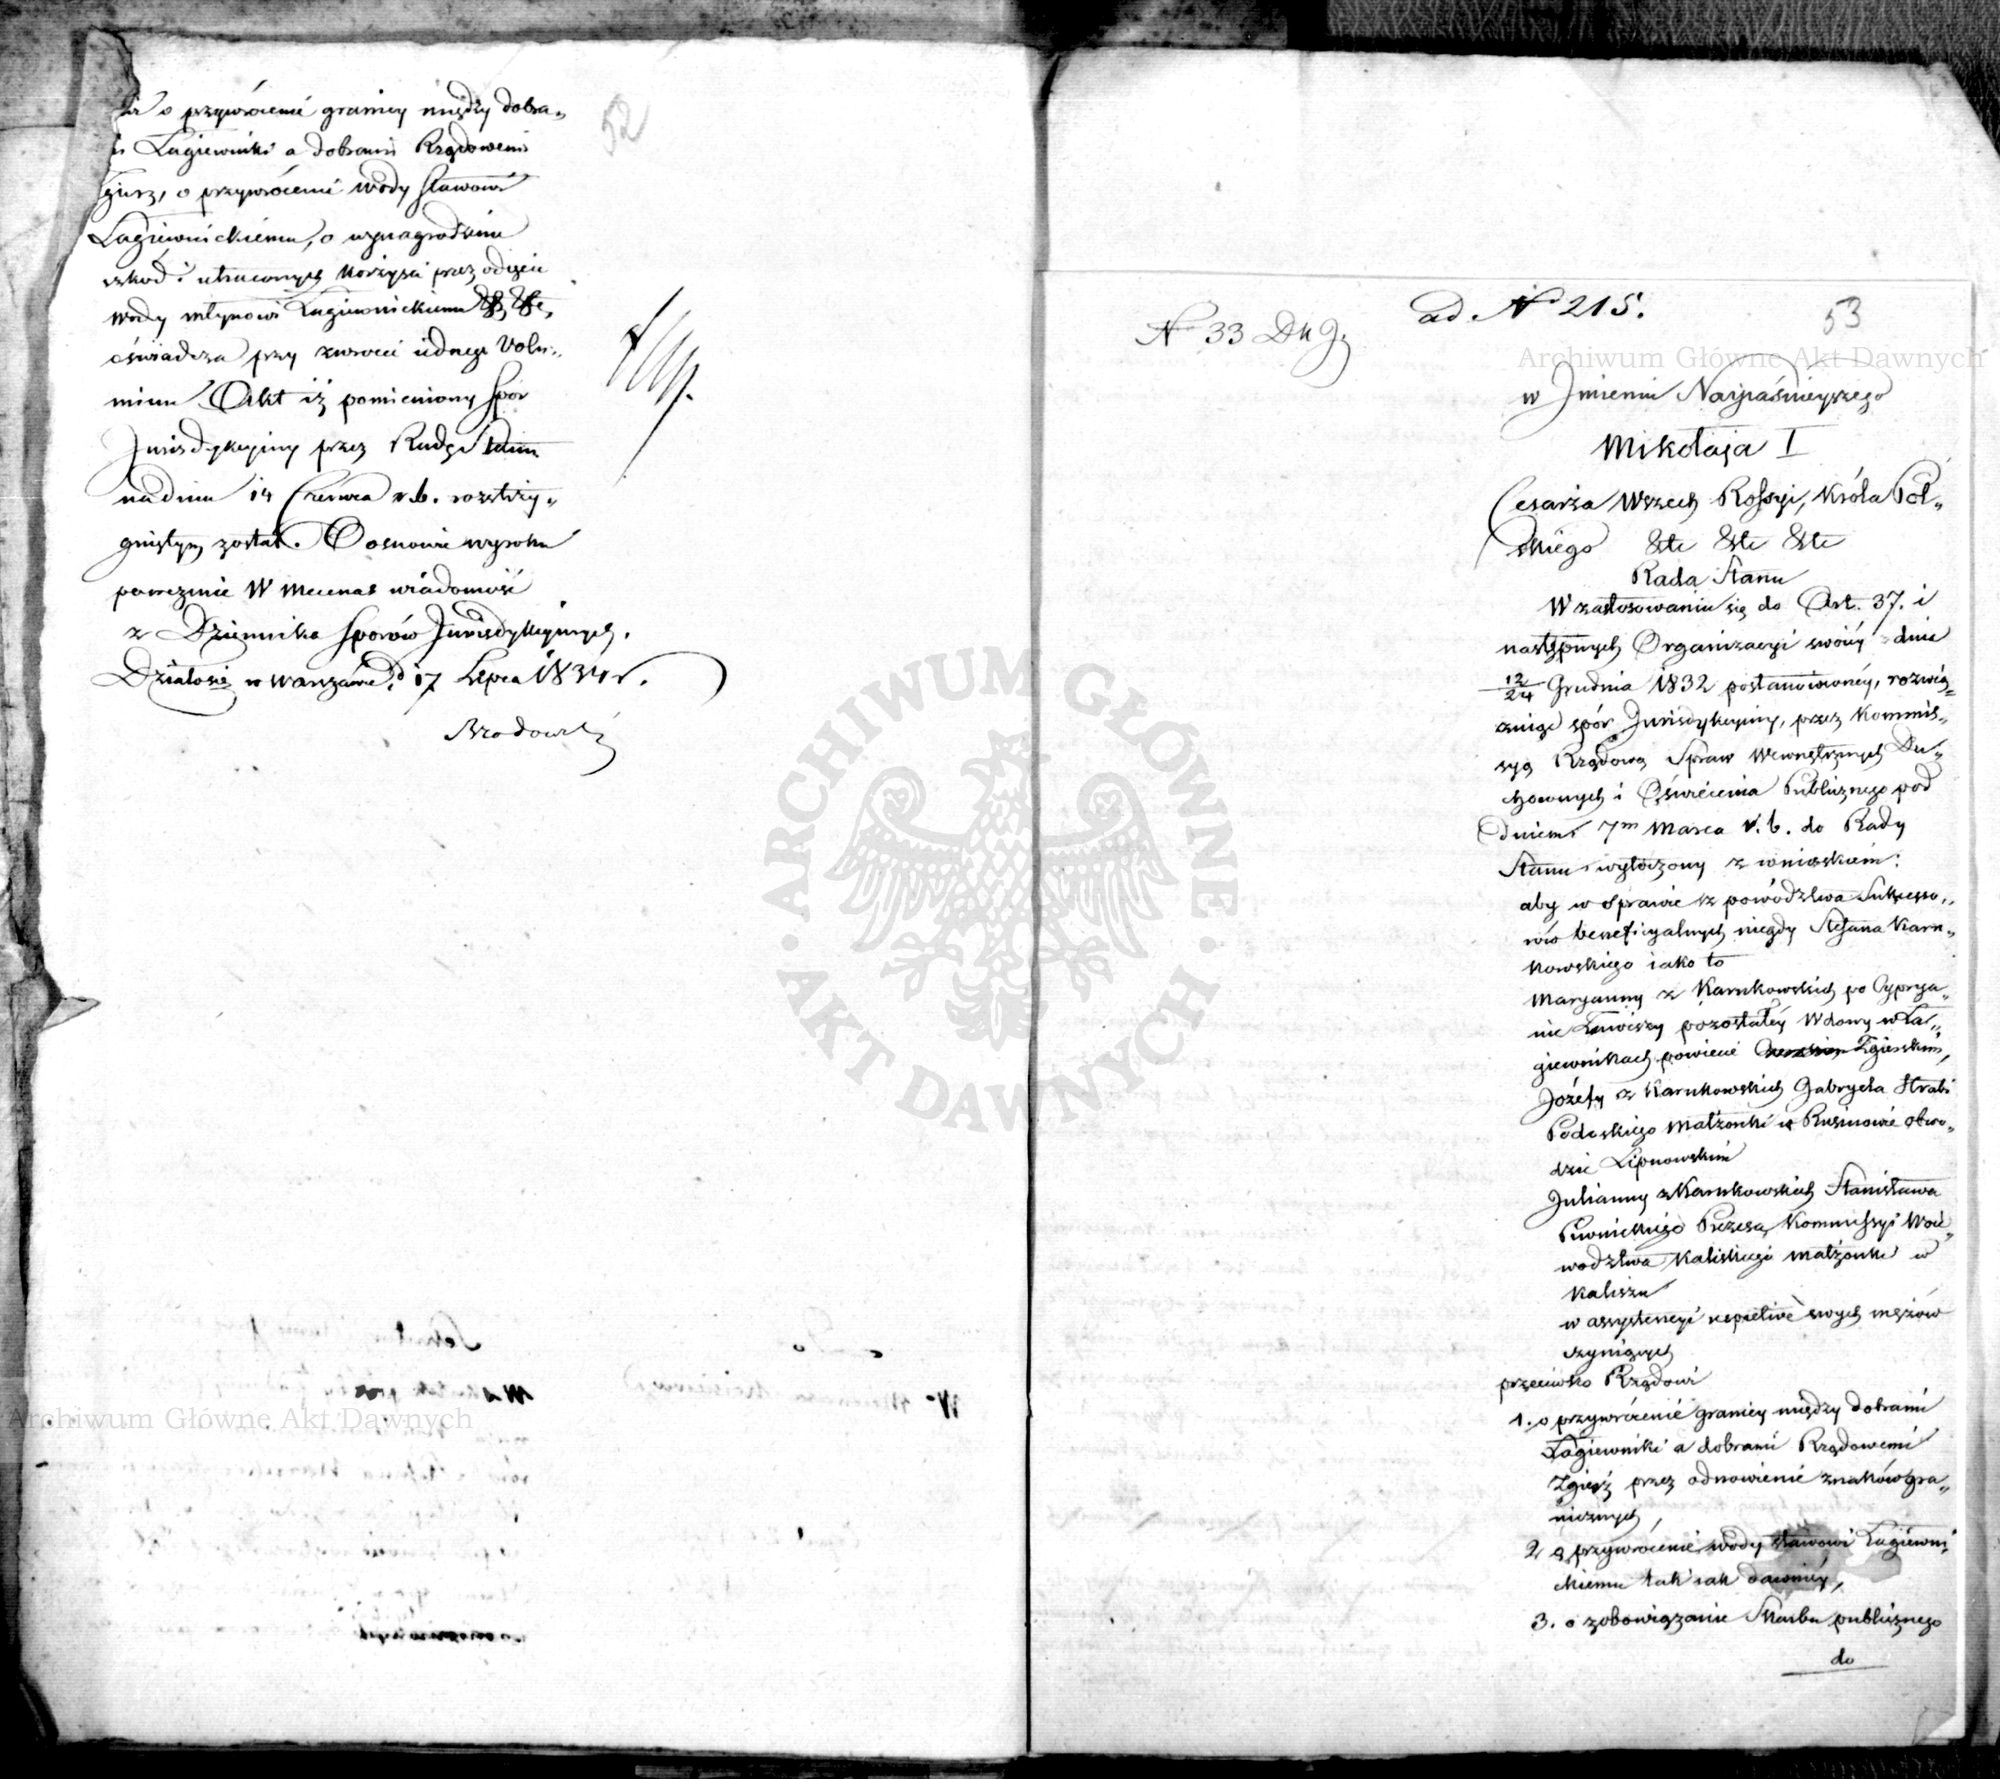 52
o przywrócenie granicy między dobra„
Łagiewniki a dobrami Rządowemi
Zgierz, o przywrócenie wody stawowi
Łagiewnickiemu, o wynagrodzenie
szkod i utraconych korzyści przez odjęcie
wody młynowi Łagiewnickiemu &c &c,
oświadcza przy zwrocie iednego Volu„
minu Akt iż pomieniony spór
Jurisdykcyiny przez Radę Stanu
na dniu 14 Czerwca r. b. rozstrzy„
gniętym został. O osnowie wyroku
poweźmie W Mecenas wiadomość
z Dziennika Sporów Jurisdykcyinych.
Działo się w Warszawie d 17 Lipca 1834 r.
Brodowski
53
ad N 215.
N 33
w Imieniu Nayjaśnieyszego
Mikołaja I
Cesarza Wszech Rossyi, Króla Pol„
skiego &tc &tc &tc
Rada Stanu
W zastosowaniu się do Art. 37. i
następnych Organizacyi swoiéy dnia
12/24 Grudnia 1832 postanowionéy, rozwią„
zuiąc spór Jurisdykcyiny, przez Kommis„
syą Rządową Spraw Wewnętrznych Du„
chownych i Oświecenia Publicznego pod
dniem 7m Marca r. b. do Rady
Stanu wytoczony z wnioskiem:
aby w sprawie z powództwa Sukcesso„
rów beneficyalnych niegdy Stefana Karn„
kowskiego iako to
Maryanny z Karnkowskich po Cyprya„
nie pozostałéy Wdowy w Ła„
giewnikach powiecie Zgierskim,
Józefy z Karnkowskich Gabryela Hrabi
Podoskiego Małżonki w Rusinowie obwo„
dzie Lipnowskim
Julianny z Karnkowskich Stanisława
Piwnickiego Prezesa Kommissyi Woie„
wodztwa Kaliskiego Małżonki w
Kaliszu
w assystencyi respective swych mężów
czyniących
przeciwko Rządowi
1. o przywrócenie granicy między dobrami
Łagiewniki a dobrami Rządowemi
Zgierz przez odnowienie znaków gra„
nicznych,
2 o przywrócenie wody stawowi Łagiewni„
ckiemu tak iak dawniéy,
3. o zobowiązanie Skarbu publicznego
do
Archiwum Główne Akt Dawnych
Archiwum Główne Akt Dawnych
ARCHIWUM GŁÓWNE · AKT DAWNYCH ·